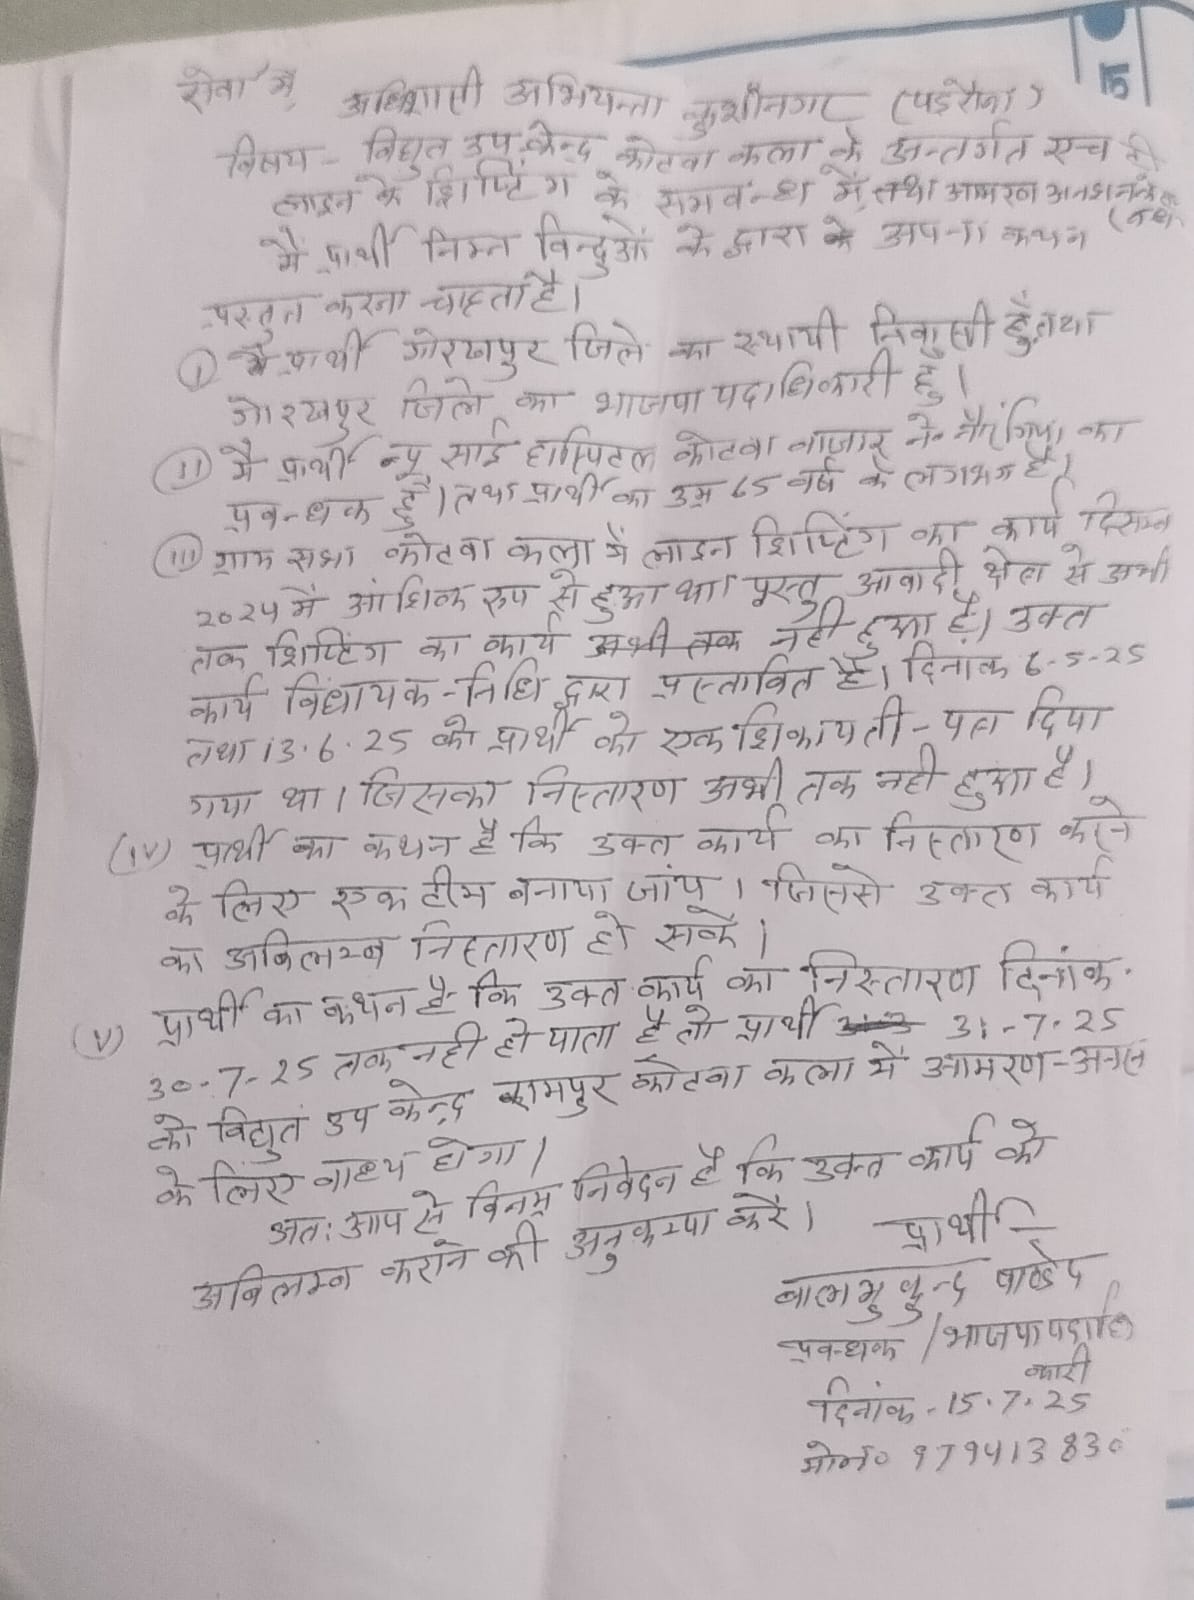 सेवा में,
अधिशासी अभियन्ता कुशीनगर (पडरौना)
विषय - विद्युत उप केन्द्र कोटवा कला के अन्तर्गत एच टी
लाइन के शिफ्टिंग के सम्बन्ध में, तथा आमरण अनशन
मैं प्रार्थी निम्न विन्दुओं के द्वारा के अपना कथन
प्रस्तुत करना चाहता है।
(I) मैं प्रार्थी गोरखपुर जिले का स्थायी निवासी हूँ, तथा
गोरखपुर जिले का भाजपा पदाधिकारी हुं।
(II) मै प्रार्थी न्यू साई हास्पिटल कोटवा बाजार ने० नौरंगिया का
प्रबन्धक हुँ। तथा प्रार्थी का उम्र 65 वर्ष के लगभग है।
(III) ग्राम सभा कोटवा कला में लाइन शिफ्टिंग का कार्य दिसम्बर
2024 में आंशिक रुप से हुआ था। परन्तु आवादी क्षेत्र से अभी
तक शिफ्टिंग का कार्य अभी तक नही हुआ है। उक्त
कार्य विधायक-निधि द्वारा प्रस्तावित है। दिनांक 6-5-25
तथा 13.6.25 को प्रार्थी को एक शिकायती-पत्र दिया
गया था। जिसका निस्तारण अभी तक नही हुआ है।
(IV) प्रार्थी का कथन है कि उक्त कार्य का निस्तारण करने
के लिए एक टीम बनाया जांय। जिससे उक्त कार्य
का अबिलम्ब निस्तारण हो सके।
(V) प्रार्थी का कथन है कि उक्त कार्य का निस्तारण दिनांक.
30-7-25 तक नही हो पाता है तो प्रार्थी 31-7-25
को विद्युत उप केन्द्र रामपुर कोटवा कला में आमरण-अनशन
के लिए बाध्य होगा।
अत: आप से विनम्र निवेदन है कि उक्त कार्य को
अबिलम्ब कराने की अनुकम्पा करें।
प्रार्थी -
बालमुकुन्द पाण्डेय
प्रबन्धक / भाजपा पदाधि
कारी
दिनांक - 15.7.25
मो०न० 979413830